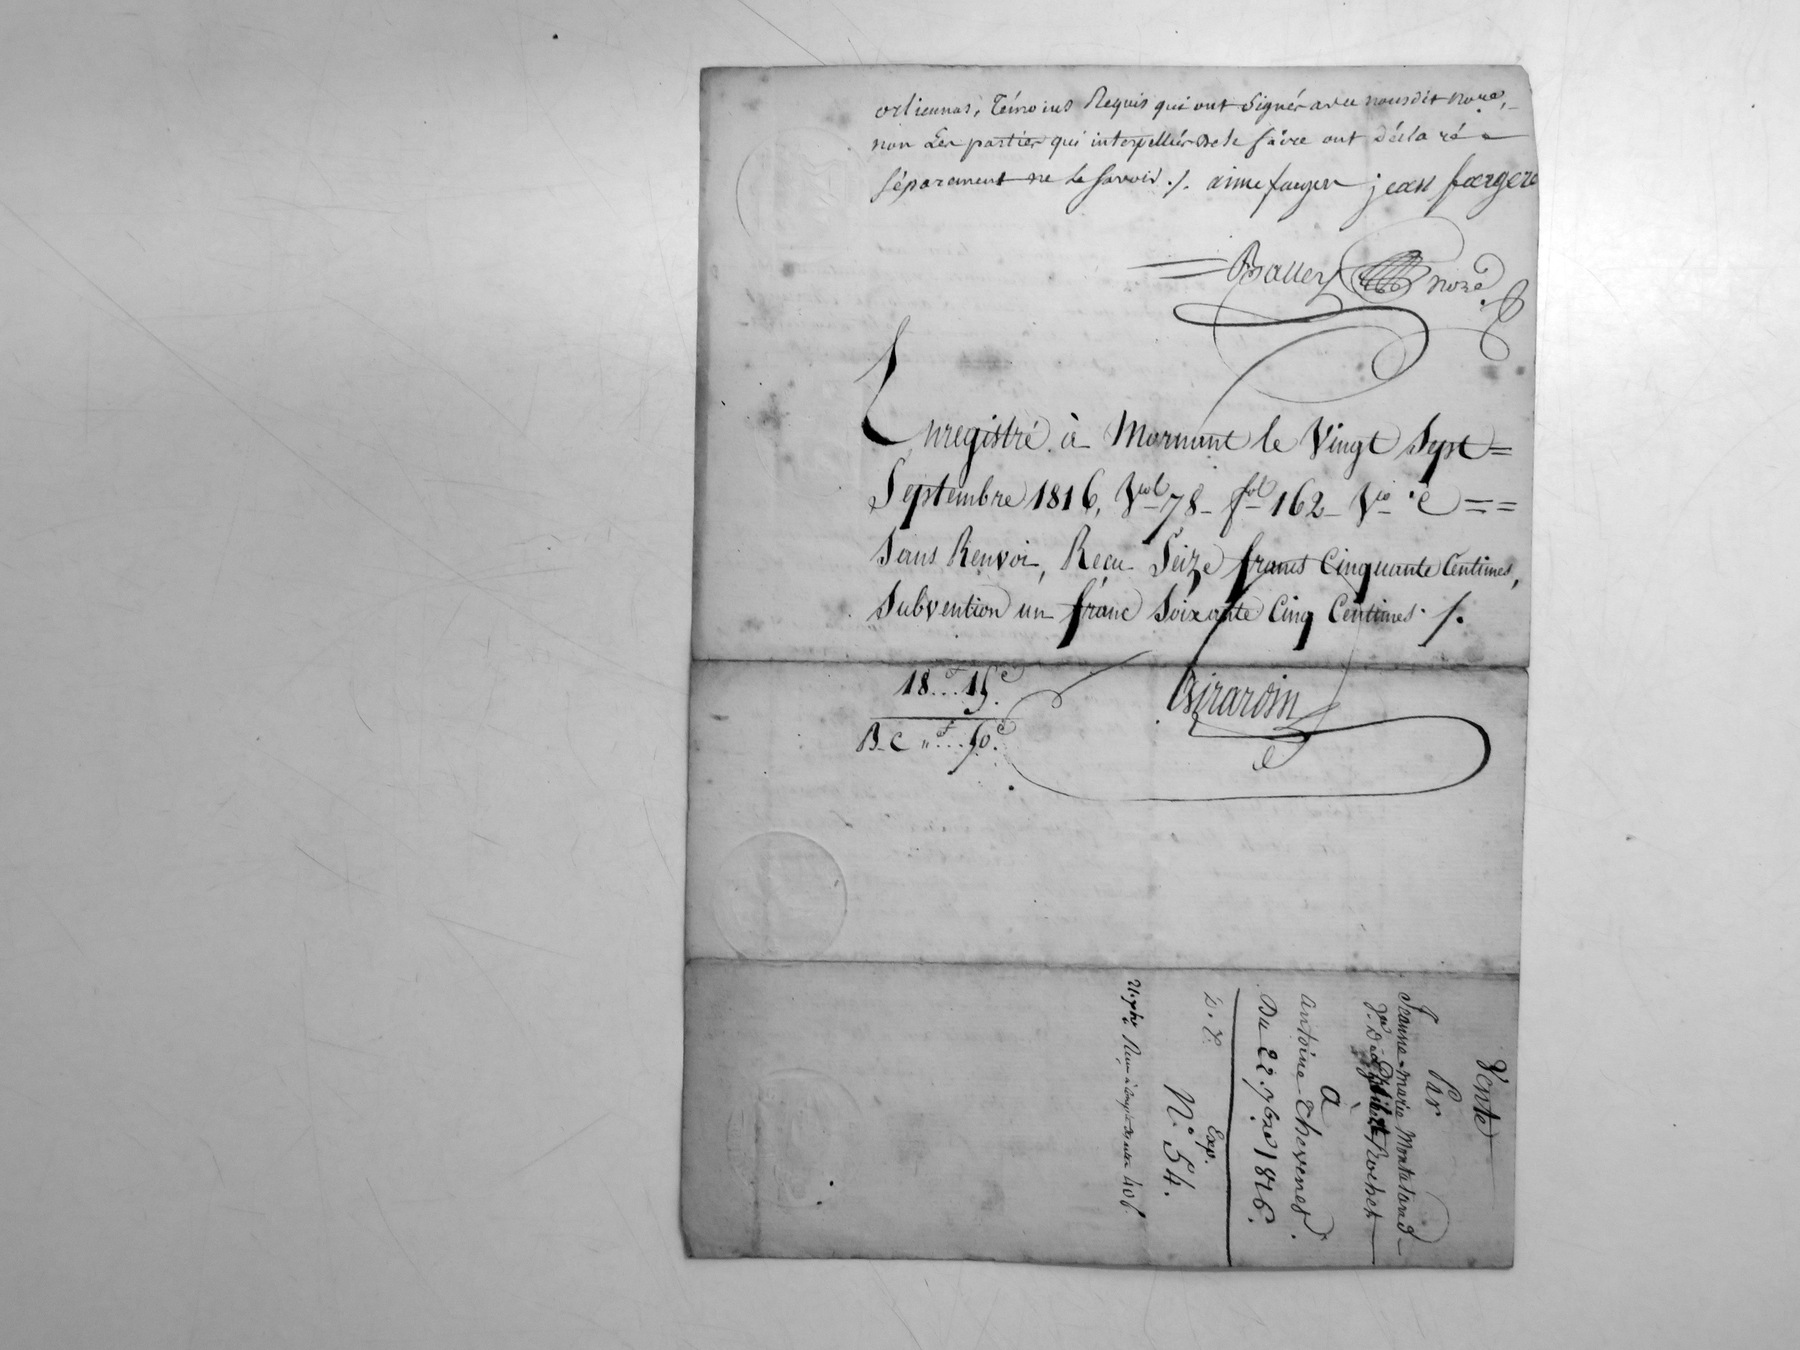 orliennas, Témoins Requis qui ont Signés avec nousdit nore,
non Les parties qui interpellées de le faire ont déclaré
séparement ne le savoir ./. aime farger jean fargere
nore
Enregistré à Mornant le Vingt Sept =
Septembre 1816, Vol 78 - fol 162 - Vso C ==
Sans Renvoi, Recu Seize francs Cinquante Centimes,
Subvention un franc Soixante Cinq Centimes ./.
18f...15c.
Girardin
B-C "f...50c.
Vente
Par
Jeanne-Marie Montaland
Rochet
A
antoine Thevenet.
Du 22. 7bre 1816.
Exp.
N.° 54.